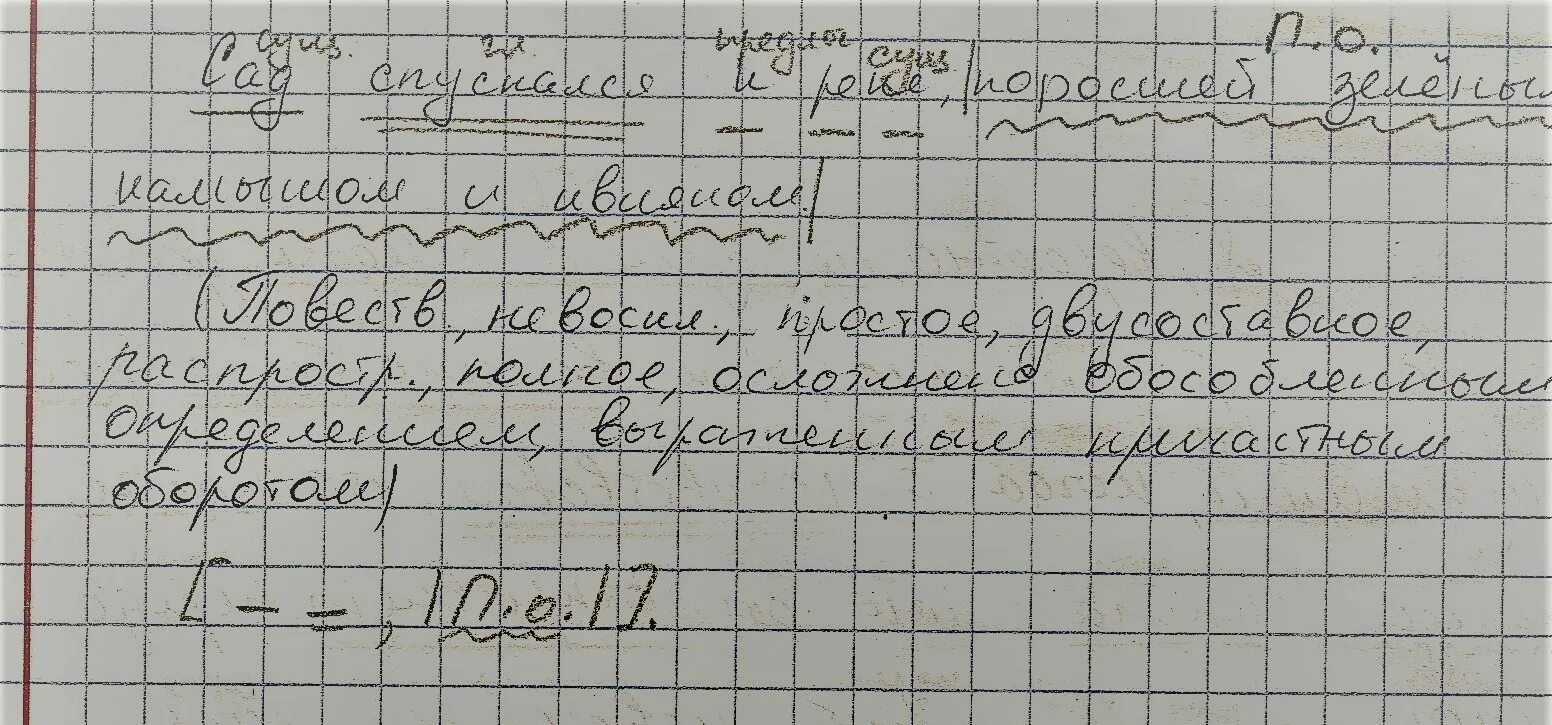 П.о.
сущ. гл предлог сущ
Сад спускался к реке, |поросшей зелёным
камышом и ивняком|
(Повеств., невоскл., простое, двусоставное,
распростр., полное, осложнено обособленным
определением, выраженным причастным
оборотом)
[– =, |П.о.|].